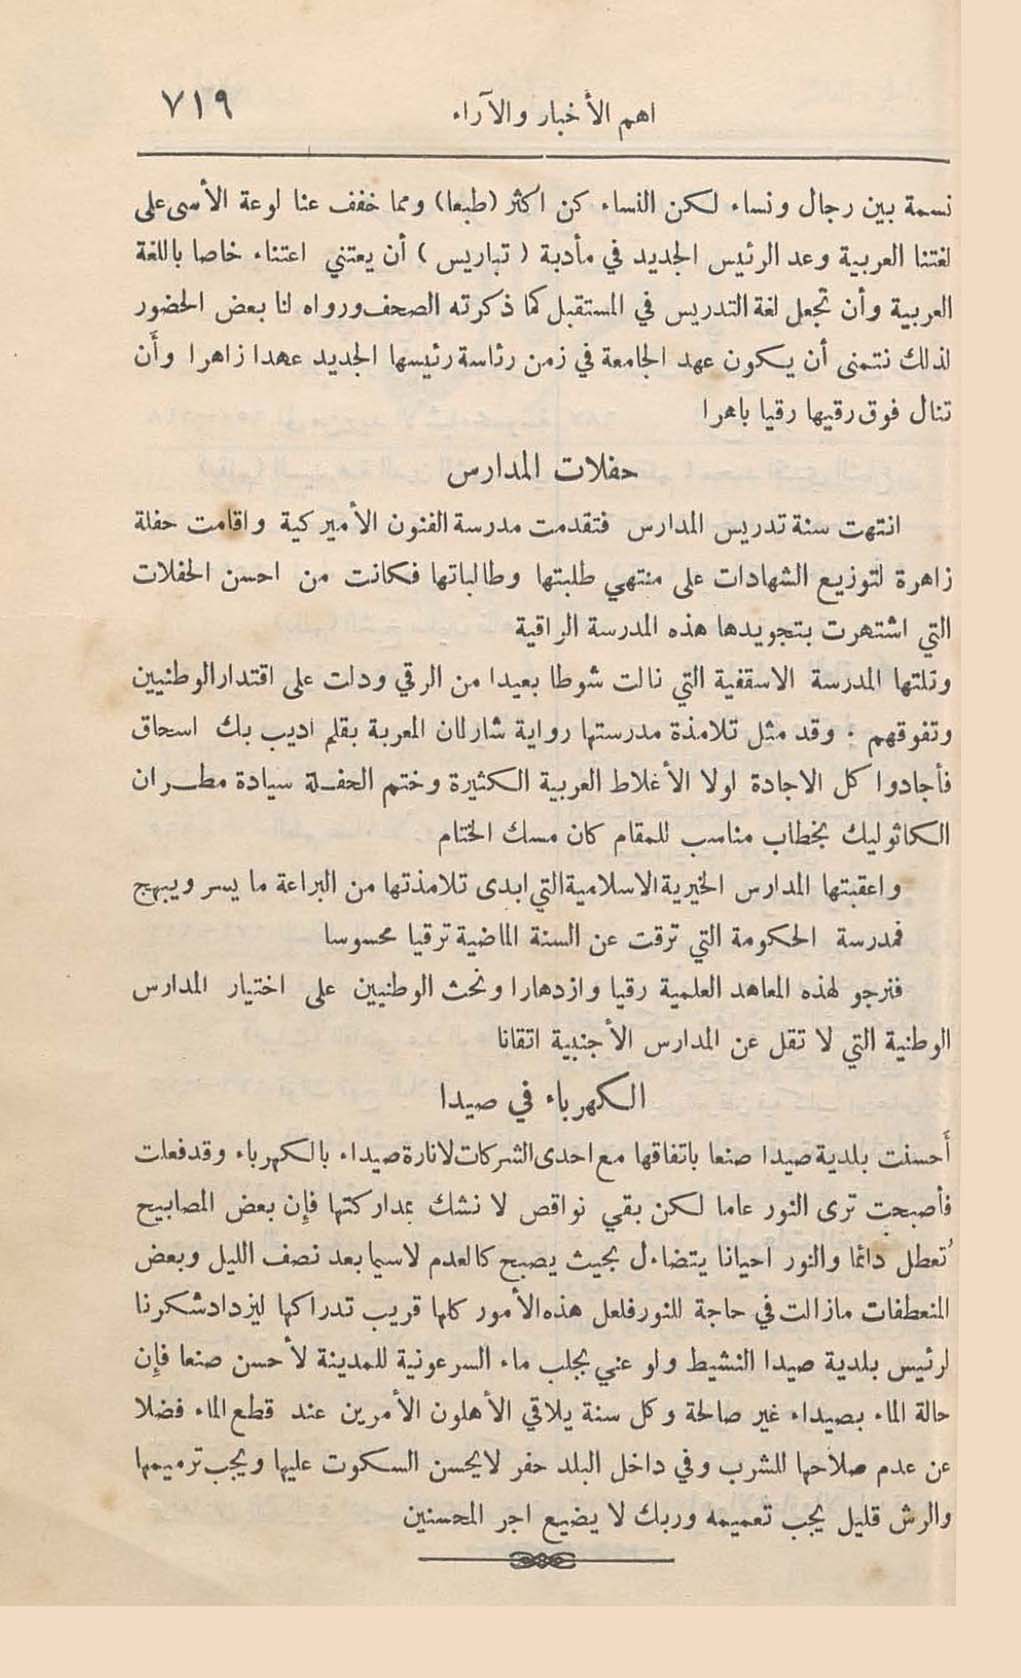 اهم الأخبار والآراء ٧١٩
نسمة بين رجال ونساء لكن النساء كن اكثر (طبعا) ومما خفف عنا لوعة الأسى على
لغتنا العربية وعد الرئيس الجديد في مأدبة ( تباريس ) أن يعتني اعتناء خاصا باللغة
العربية وأن تجعل لغة التدريس في المستقبل كما ذكرته الصحف ورواه لنا بعض الحضور
لذلك نتمنى أن يكون عهد الجامعة في زمن رئاسة رئيسها الجديد عهدا زاهرا وأن
تنال فوق رقيها رقيا باهرا
حفلات المدارس
انتهت سنة تدريس المدارس فتقدمت مدرسة الفنون الأميركية واقامت حفلة
زاهرة لتوزيع الشهادات على منتهي طلبتها وطالباتها فكانت من احسن الحفلات
التي اشتهرت بتجويدها هذه المدرسة الراقية
وتلتها المدرسة الاسقفية التي نالت شوطا بعيدا من الرقي ودلت على اقتدار الوطنيين
وتفوقهم . وقد مثل تلامذة مدرستها رواية شارلمان المعربة بقلم اديب بك اسحاق
فأجادوا كل الاجادة اولا الأغلاط العربية الكثيرة وختم الحفلة سيادة مطران
الكاثوليك بخطاب مناسب للمقام كان مسك الختام
واعقبتها المدارس الخيرية الاسلامية التي ابدى تلامذتها من البراعة ما يسر ويبهج
فمدرسة الحكومة التي ترقت عن السنة الماضية ترقيا محسوسا
فنرجو لهذه المعاهد العلمية رقيا وازدهارا ونحث الوطنيين على اختيار المدارس
الوطنية التي لا تقل عن المدارس الأجنبية اتقانا
الكهرباء في صيدا
أحسنت بلدية صيدا صنعا باتفاقها مع احدى الشركات لانارة صيداء بالكهرباء وقد فعلت
فأصبحت ترى النور عاما لكن بقي نواقص لا نشك بمداركتها فإن بعض المصابيح
تُعطل دائما والنور احيانا يتضاءل بحيث يصبح كالعدم لاسيما بعد نصف الليل وبعض
المنعطفات مازالت في حاجة للنور فلعل هذه الأمور كلها قريب تداركها ليزداد شكرنا
لرئيس بلدية صيدا النشيط ولو عني بجلب ماء السرعونية للمدينة لأحسن صنعا فإن
حالة الماء بصيداء غير صالحة وكل سنة يلاقي الأهلون الأمرين عند قطع الماء فضلا
عن عدم صلاحها للشرب وفي داخل البلد حفر لايحسن السكوت عليها ويجب ترميمها
والرش قليل يجب تعميمه وربك لا يضيع اجر المحسنين